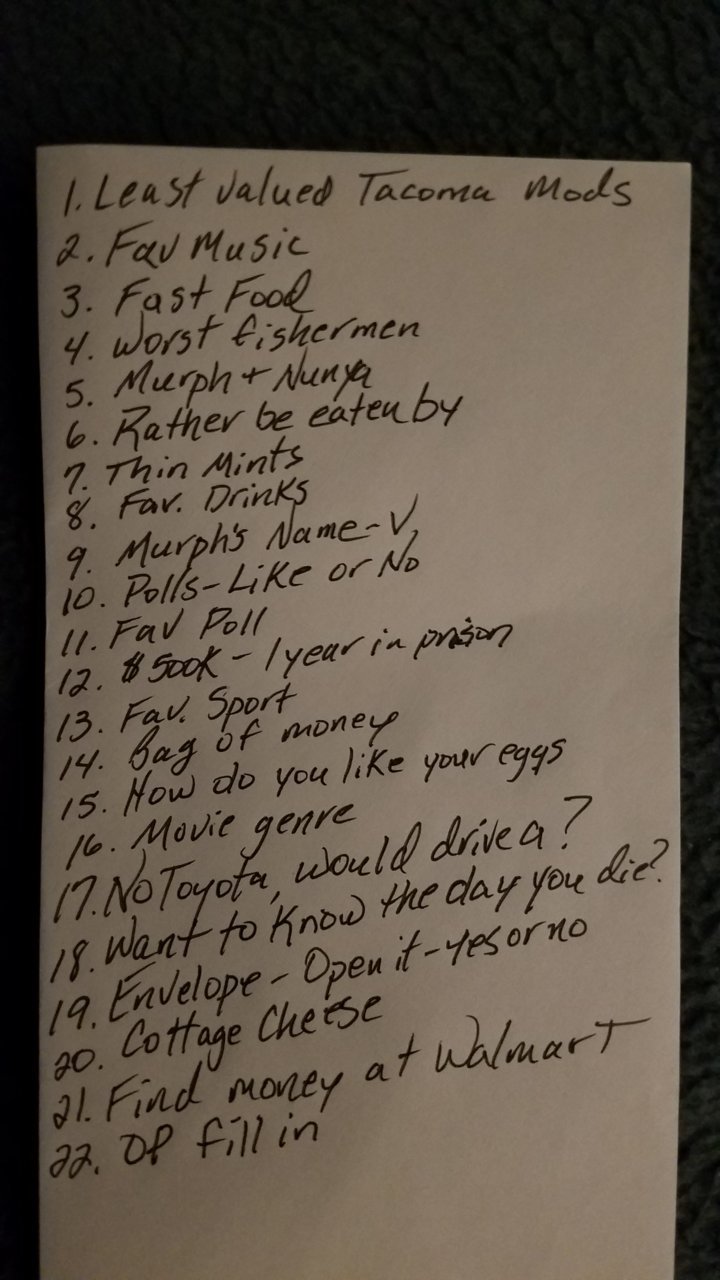 1. Least Valued Tacoma Mods
2. Fav Music
3. Fast Food
4. Worst fishermen
5. Murph + Nunya
6. Rather be eaten by
7. Thin Mints
8. Fav. Drinks
9. Murph's Name-V
10. Polls-Like or No
11. Fav Poll
12. $500K - 1 year in prison
13. Fav. Sport
14. Bag of money
15. How do you like your eggs
16. Movie genre
17. No Toyota, would drive a?
18. Want to Know the day you die?
19. Envelope - Open it - yes or no
20. Cottage Cheese
21. Find money at Walmart
22. OP fill in